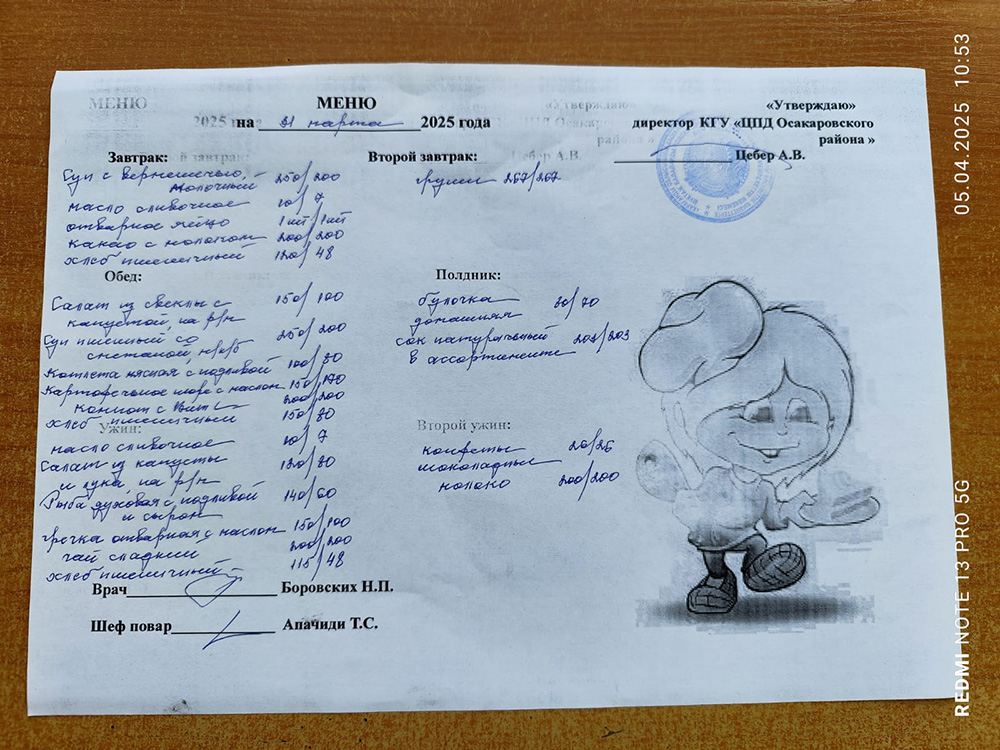 МЕНЮ
на 31 марта 2025 года
«Утверждаю»
директор КГУ «ЦПД Осакаровского
района »
Цебер А.В.
Завтрак:
Суп с вермишелью, 250/200
молочный
масло сливочное 10/7
отварное яйцо 1 шт/1 шт
какао с молоком 200/200
хлеб пшеничный 120/48
Второй завтрак:
груши 267/267
Обед:
Салат из свеклы с 150/100
капустой, на р/м
Суп пшенный со 250/200
сметаной, м/б
Котлета мясная с подливой 100/80
Картофельное пюре с маслом 150/170
Компот с Вит С 200/200
хлеб пшеничный 150/80
Полдник:
булочка 80/70
домашняя
сок натуральный 202/203
в ассортименте
Ужин:
масло сливочное 10/7
Салат из капусты 120/80
и лука на р/м
Рыба духовая с подливой 140/60
и сыром
гречка отварная с маслом 150/100
чай сладкий 200/200
хлеб пшеничный 115/48
Второй ужин:
конфеты 20/26
шоколадные
молоко 200/200
Врач Боровских Н.П.
Шеф повар Апачиди Т.С.
05.04.2025 10:53
REDMI NOTE 13 PRO 5G